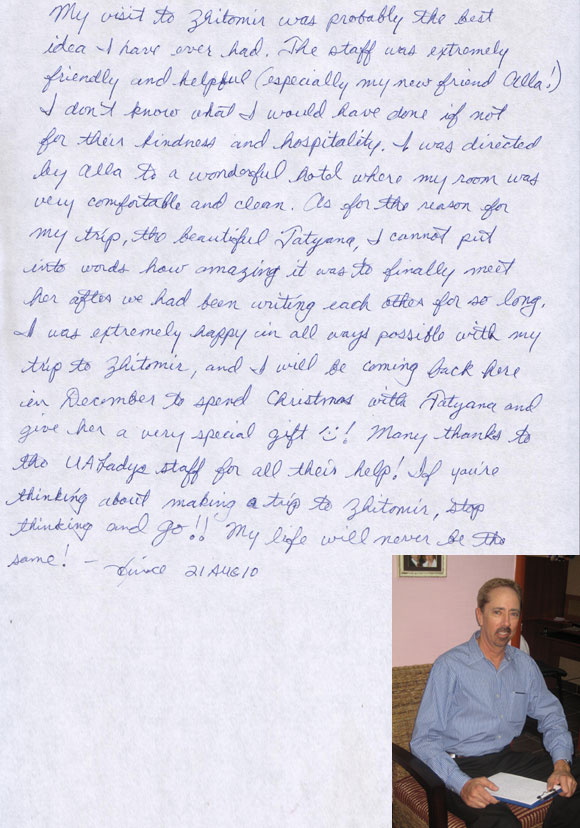 My visit to Zhitomir was probably the best
idea I have ever had. The staff was extremely
friendly and helpful (especially my new friend Alla!)
I don't know what I would have done if not
for their kindness and hospitality. I was directed
by Alla to a wonderful hotel where my room was
very comfortable and clean. As for the reason for
my trip, the beautiful Tatyana, I cannot put
into words how amazing it was to finally meet
her after we had been writing each other for so long.
I was extremely happy in all ways possible with my
trip to Zhitomir, and I will be coming back here
in December to spend Christmas with Tatyana and
give her a very special gift ! Many thanks to
the UALadys staff for all their help! If you're
thinking about making a trip to Zhitomir, stop
thinking and go!! My life will never be the
same! - 21AUG10